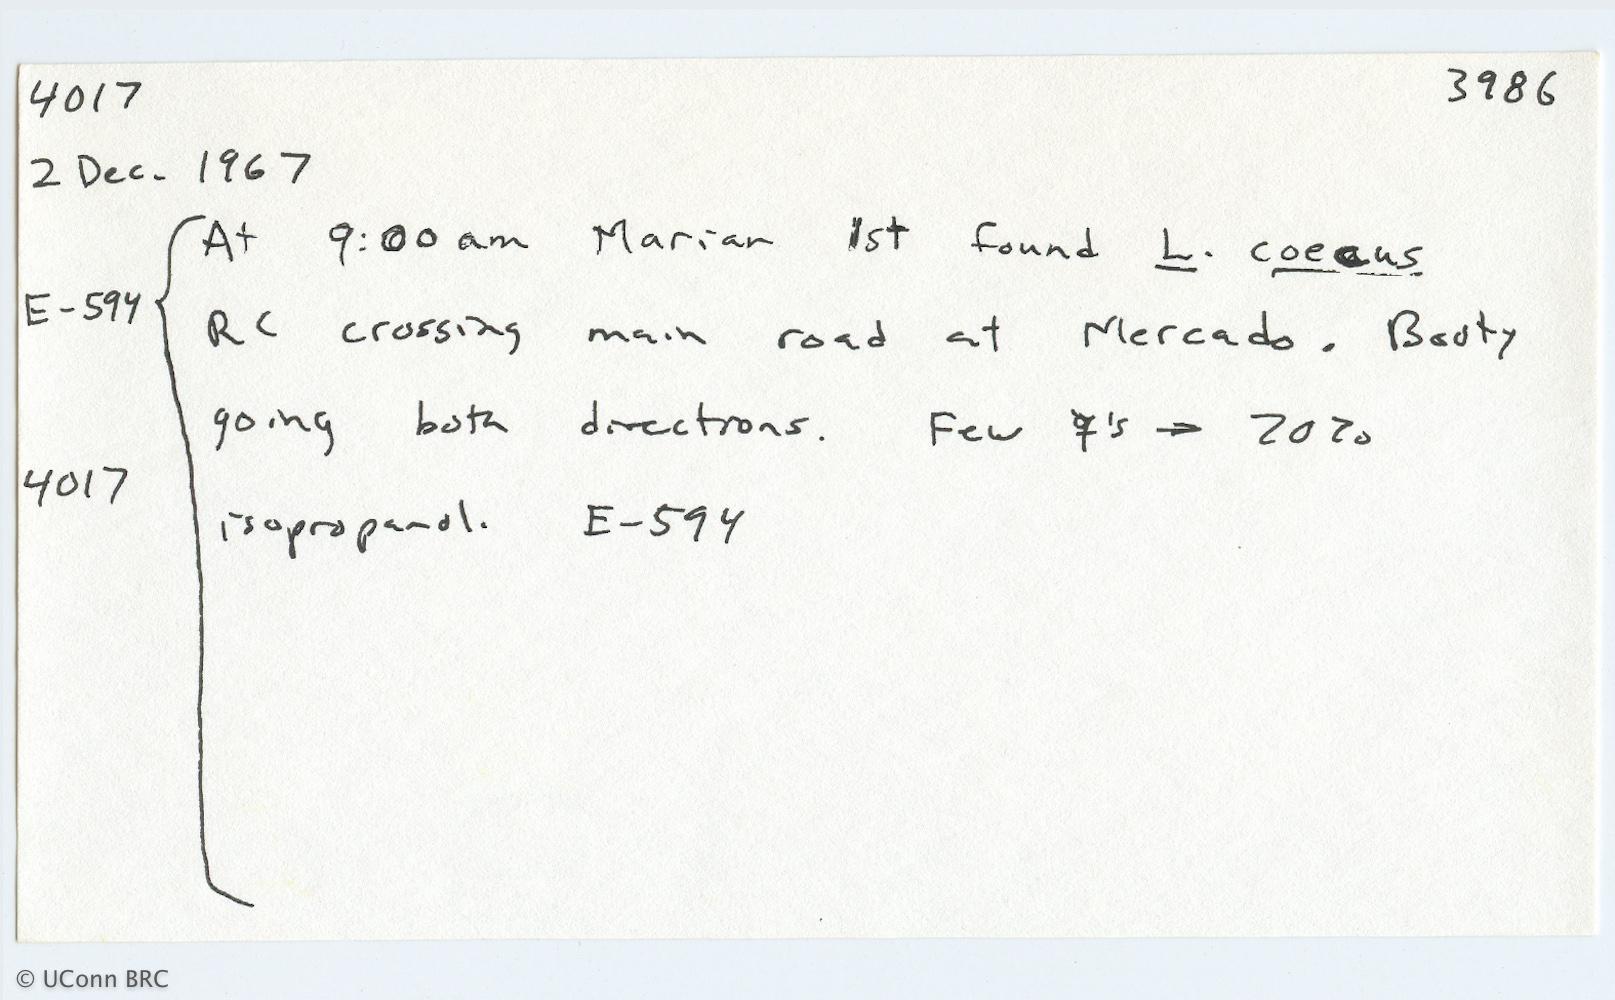 4017 3986
2 Dec. 1967
At 9:00 am Marian 1st found L. coecus
E-594 RC crossing main road at Mercado. Booty
going both directions. Few ☿'s → 70%
4017
isopropanol. E-594
© UConn BRC